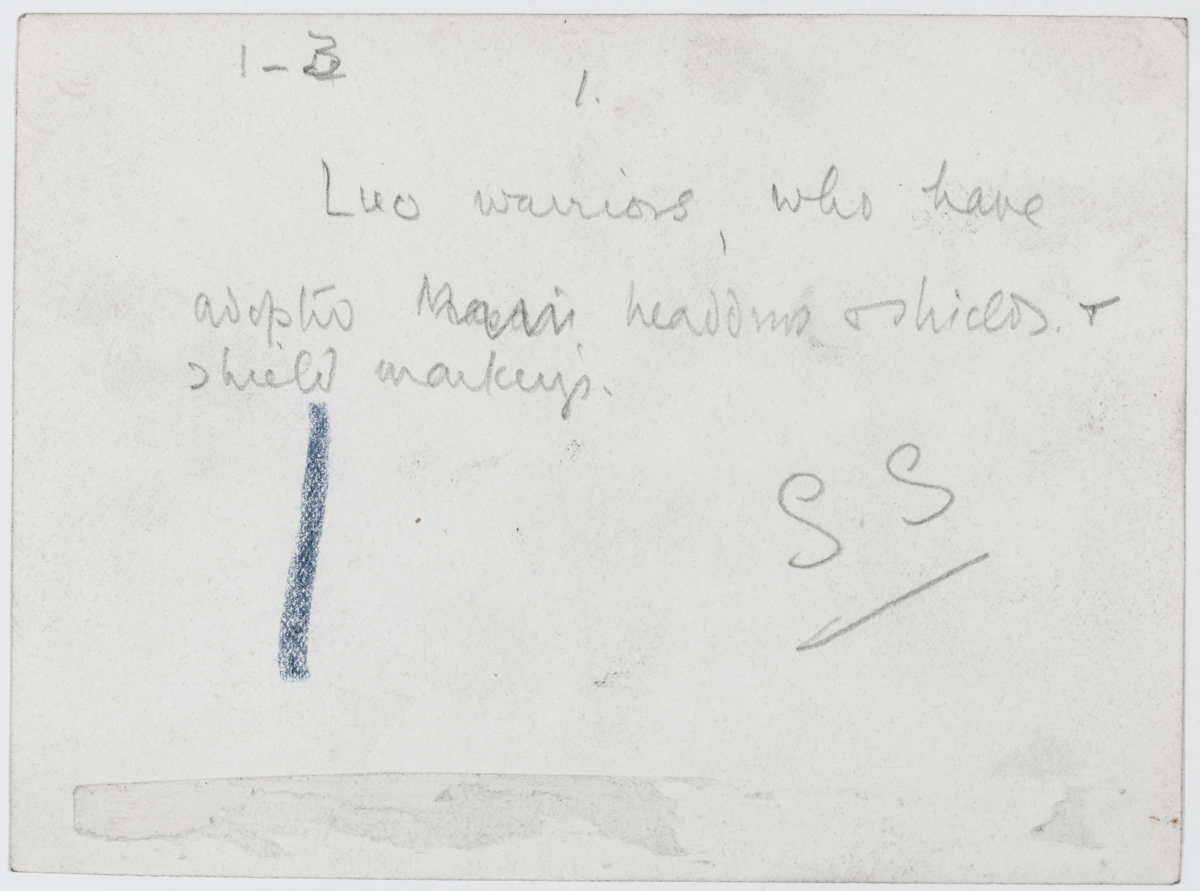 1-3
1.
Luo warriors, who have
adopted Masai headdress & shields. &
shield markings.
SS